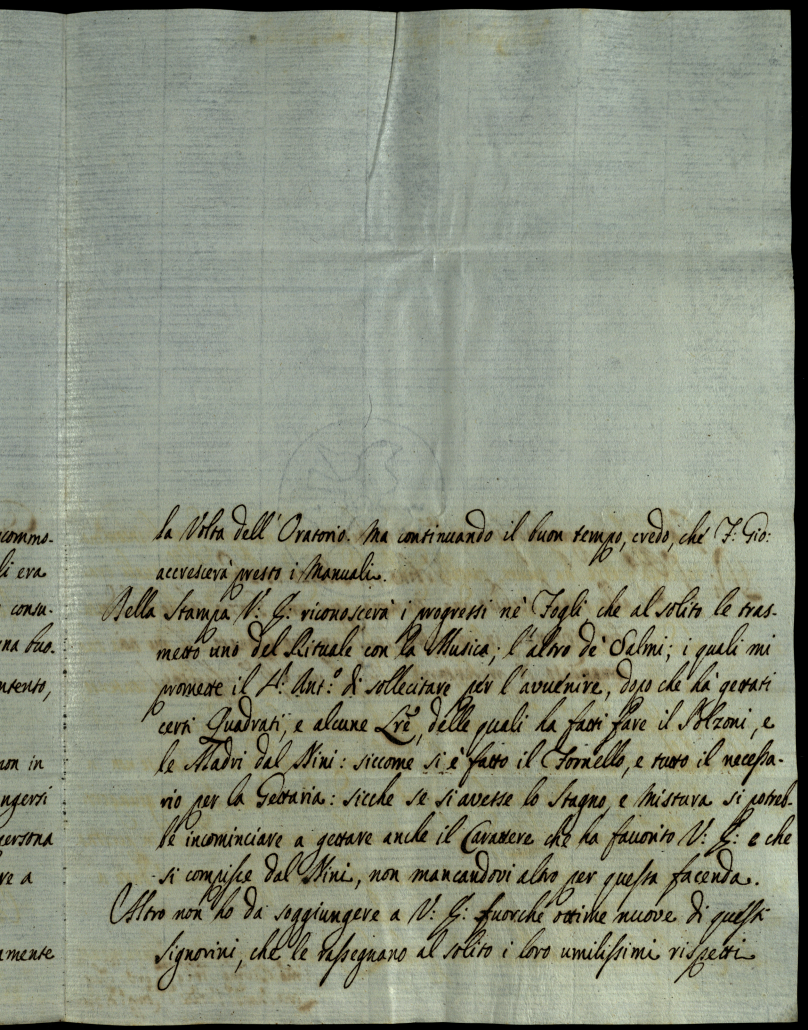 commo-
li era
consu-
na buo-
ntento,
non in
ngersi
persona
re a
amente
la Volta dell' Oratorio. Ma continuando il buon tempo, credo, che F: Gio:
accrescerà presto i Manuali.
Della Stampa V: G: riconoscerà i progressi nè Fogli, che al solito le tras-
metto uno del Rituale con la Musica; l'altro dè Salmi; i quali mi
promette il Ant.º di sollecitare per l'avvenire, dopo che hà gettati
certi Quadrati, e alcune Lre, delle quali ha fatti fare il Polzoni, e
le Madri dal Nini: siccome si è fatto il Fornello, e tutto il necessa-
rio per la Gettaria: sicche se si avesse lo Stagno, e Mistura si potreb-
be incominciare a gettare anche il Carattere che ha favorito V: G: e che
si compisce dal Nini, non mancandovi altro per questa facenda.
Altro non ho da soggiungere a V: G: fuorchè ottime nuove di questi
Signorini, che le rassegnano al solito i loro umilissimi rispetti